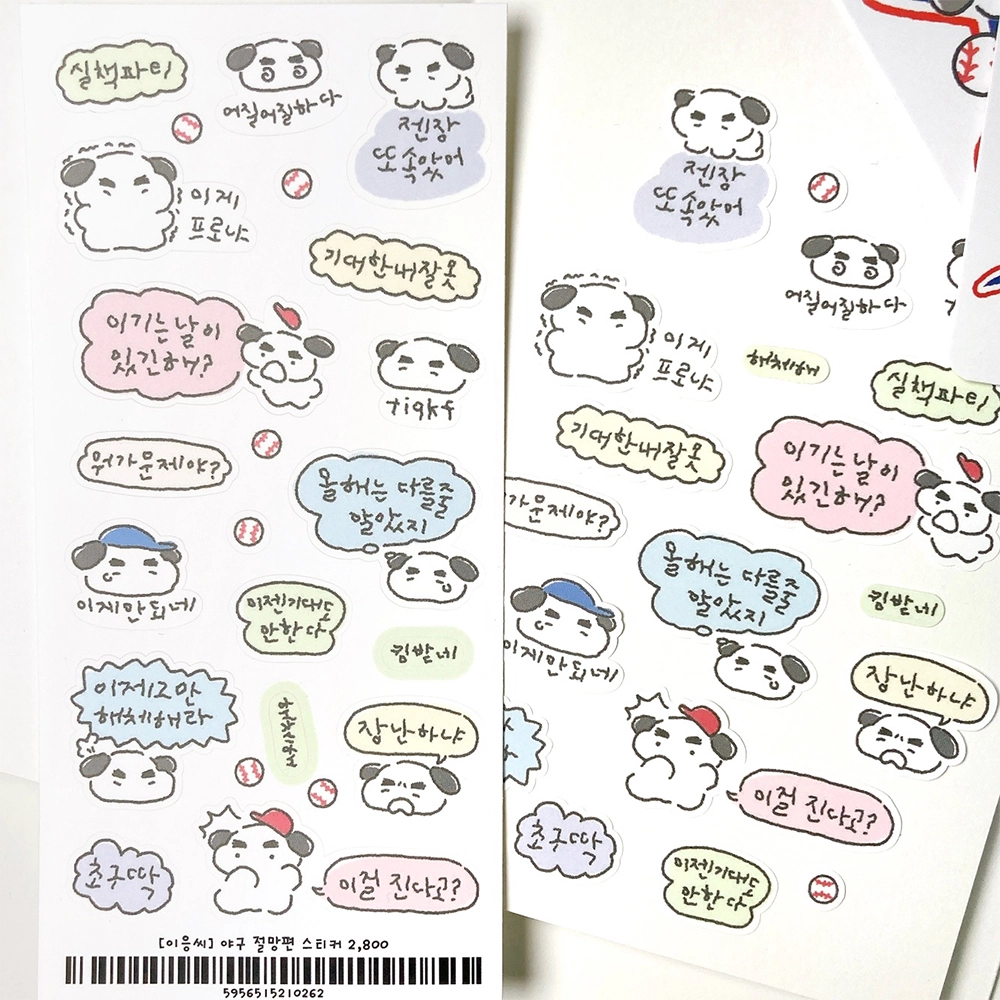 실책파티
어질어질하다
젠장
또 속았어
이게
프로냐
기대한내잘못
이기는날이
있긴해?
tlqkf
뭐가문제야?
올해는 다를줄
알았지
이제만되네
이젠기대도
안한다
킹받네
이제그만
해체해라
장난하냐
초구딱
이걸 진다고?
[이응씨] 야구 절망편 스티커 2,800
5956515210262
젠장
또 속았어
어질어질하다
이게
프로냐
해체해
실책파티
기대한내잘못
이기는날이
있긴해?
가문제야?
올해는 다를줄
알았지
킹받네
이제만되네
장난하냐
이걸 진다고?
초구딱
이젠기대도
안한다